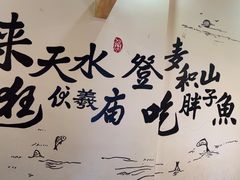 来天水
逛伏羲庙
登麦积山
吃胖子魚